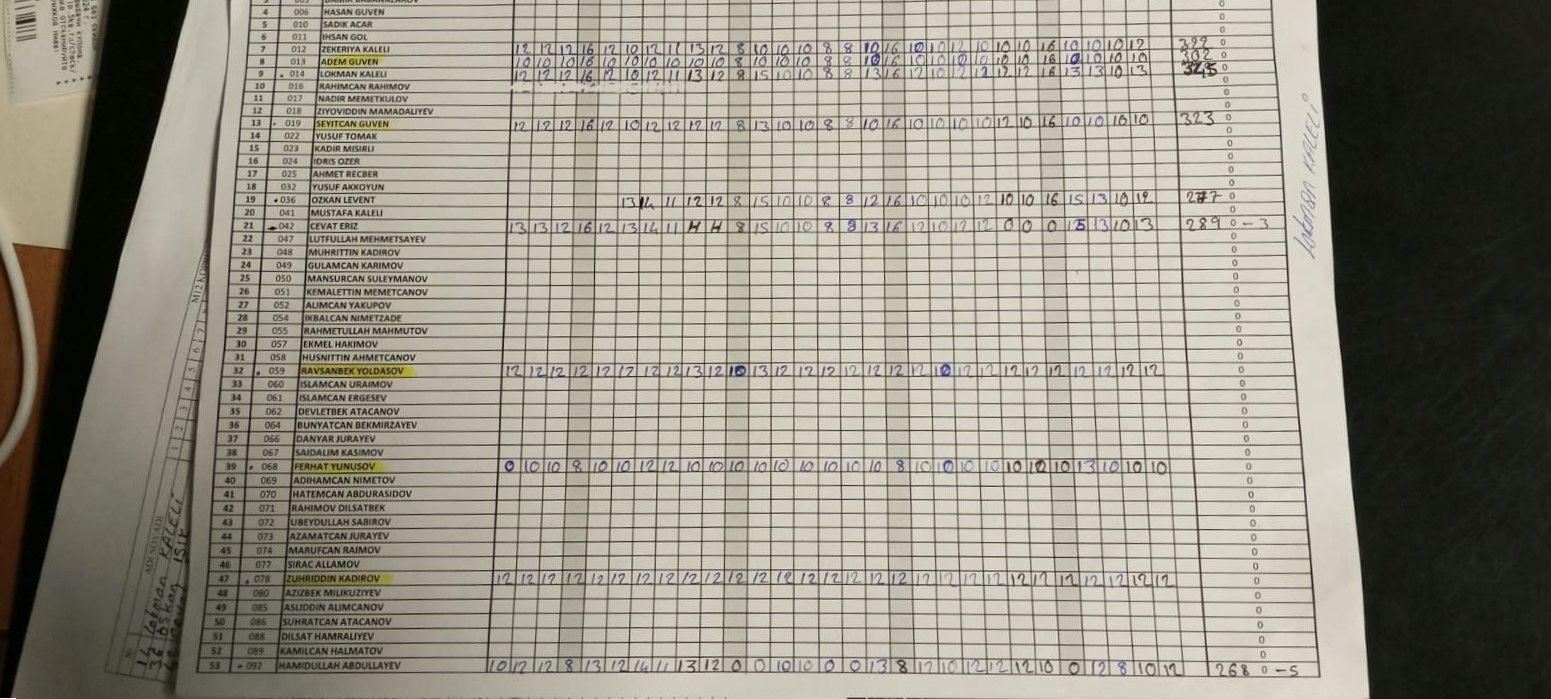 4 006 HASAN GUVEN 0
5 010 SADIK ACAR 0
6 011 IHSAN GOL 0
7 012 ZEKERIYA KALELI 12 12 12 16 12 10 12 11 13 12 8 10 10 10 8 8 10 16 10 10 12 10 10 10 16 10 10 10 12 0
8 013 ADEM GUVEN 10 10 10 16 10 10 10 10 10 10 8 10 10 10 8 8 10 16 10 10 10 10 10 10 16 10 10 10 10 302 0
9 014 LOKMAN KALELI 12 12 12 16 12 10 12 11 13 12 8 15 10 10 8 8 13 16 12 10 12 12 12 12 16 13 13 10 13 0
10 016 RAHIMCAN RAHIMOV 0
11 017 NADIR MEMETKULOV 0
12 018 ZIYOVIDDIN MAMADALIYEV 0
13 019 SEYITCAN GUVEN 12 12 12 16 12 10 12 12 12 12 8 13 10 10 8 8 10 16 10 10 10 10 12 10 16 10 10 10 10 323 0
14 022 YUSUF TOMAK 0
15 023 KADIR MISIRLI 0
16 024 IDRIS OZER 0
17 025 AHMET RECBER 0
18 032 YUSUF AKKOYUN 0
19 036 OZKAN LEVENT 13 14 11 12 12 8 15 10 10 8 8 12 16 10 10 10 12 10 10 16 15 13 10 12 0
20 041 MUSTAFA KALELI 0
21 042 CEVAT ERIZ 13 13 12 16 12 13 14 11 H H 8 15 10 10 8 8 13 16 12 10 12 12 0 0 0 15 13 10 13 289 0 -3
22 047 LUTFULLAH MEHMETSAYEV 0
23 048 MUHRITTIN KADIROV 0
24 049 GULAMCAN KARIMOV 0
25 050 MANSURCAN SULEYMANOV 0
26 051 KEMALETTIN MEMETCANOV 0
27 052 ALIMCAN YAKUPOV 0
28 054 IKBALCAN NIMETZADE 0
29 055 RAHMETULLAH MAHMUTOV 0
30 057 EKMEL HAKIMOV 0
31 058 HUSNITTIN AHMETCANOV 0
32 059 RAVSANBEK YOLDASOV 12 12 12 12 12 12 12 12 13 12 10 13 12 12 12 12 12 12 12 10 12 12 12 12 12 12 12 12 12 0
33 060 ISLAMCAN URAIMOV 0
34 061 ISLAMCAN ERGESEV 0
35 062 DEVLETBEK ATACANOV 0
36 064 BUNYATCAN BEKMIRZAYEV 0
37 066 DANYAR JURAYEV 0
38 067 SAIDALIM KASIMOV 0
39 068 FERHAT YUNUSOV 0 10 10 8 10 10 12 12 10 10 10 10 10 10 10 10 10 8 10 10 10 10 10 10 10 13 10 10 10 0
40 069 ADIHAMCAN NIMETOV 0
41 070 HATEMCAN ABDURASIDOV 0
42 071 RAHIMOV DILSATBEK 0
43 072 UBEYDULLAH SABIROV 0
44 073 AZAMATCAN JURAYEV 0
45 074 MARUFCAN RAIMOV 0
46 077 SIRAC ALLAMOV 0
47 078 ZUHRIDDIN KADIROV 12 12 12 12 12 12 12 12 12 12 12 12 12 12 12 12 12 12 12 12 12 12 12 12 12 12 12 12 12 0
48 080 AZIZBEK MILIKUZIYEV 0
49 085 ASLIDDIN ALIMCANOV 0
50 086 SUHRATCAN ATACANOV 0
51 088 DILSAT HAMRALIYEV 0
52 089 KAMILCAN HALMATOV 0
53 092 HAMIDULLAH ABDULLAYEV 10 12 12 8 13 12 14 11 13 12 0 0 10 10 0 0 13 8 12 10 12 12 12 10 0 12 8 10 12 268 0 -5
lokman KALELI
ADI SOYADI
14 lokman KALELI
36 oskan
1 2 3 4 5 6 7